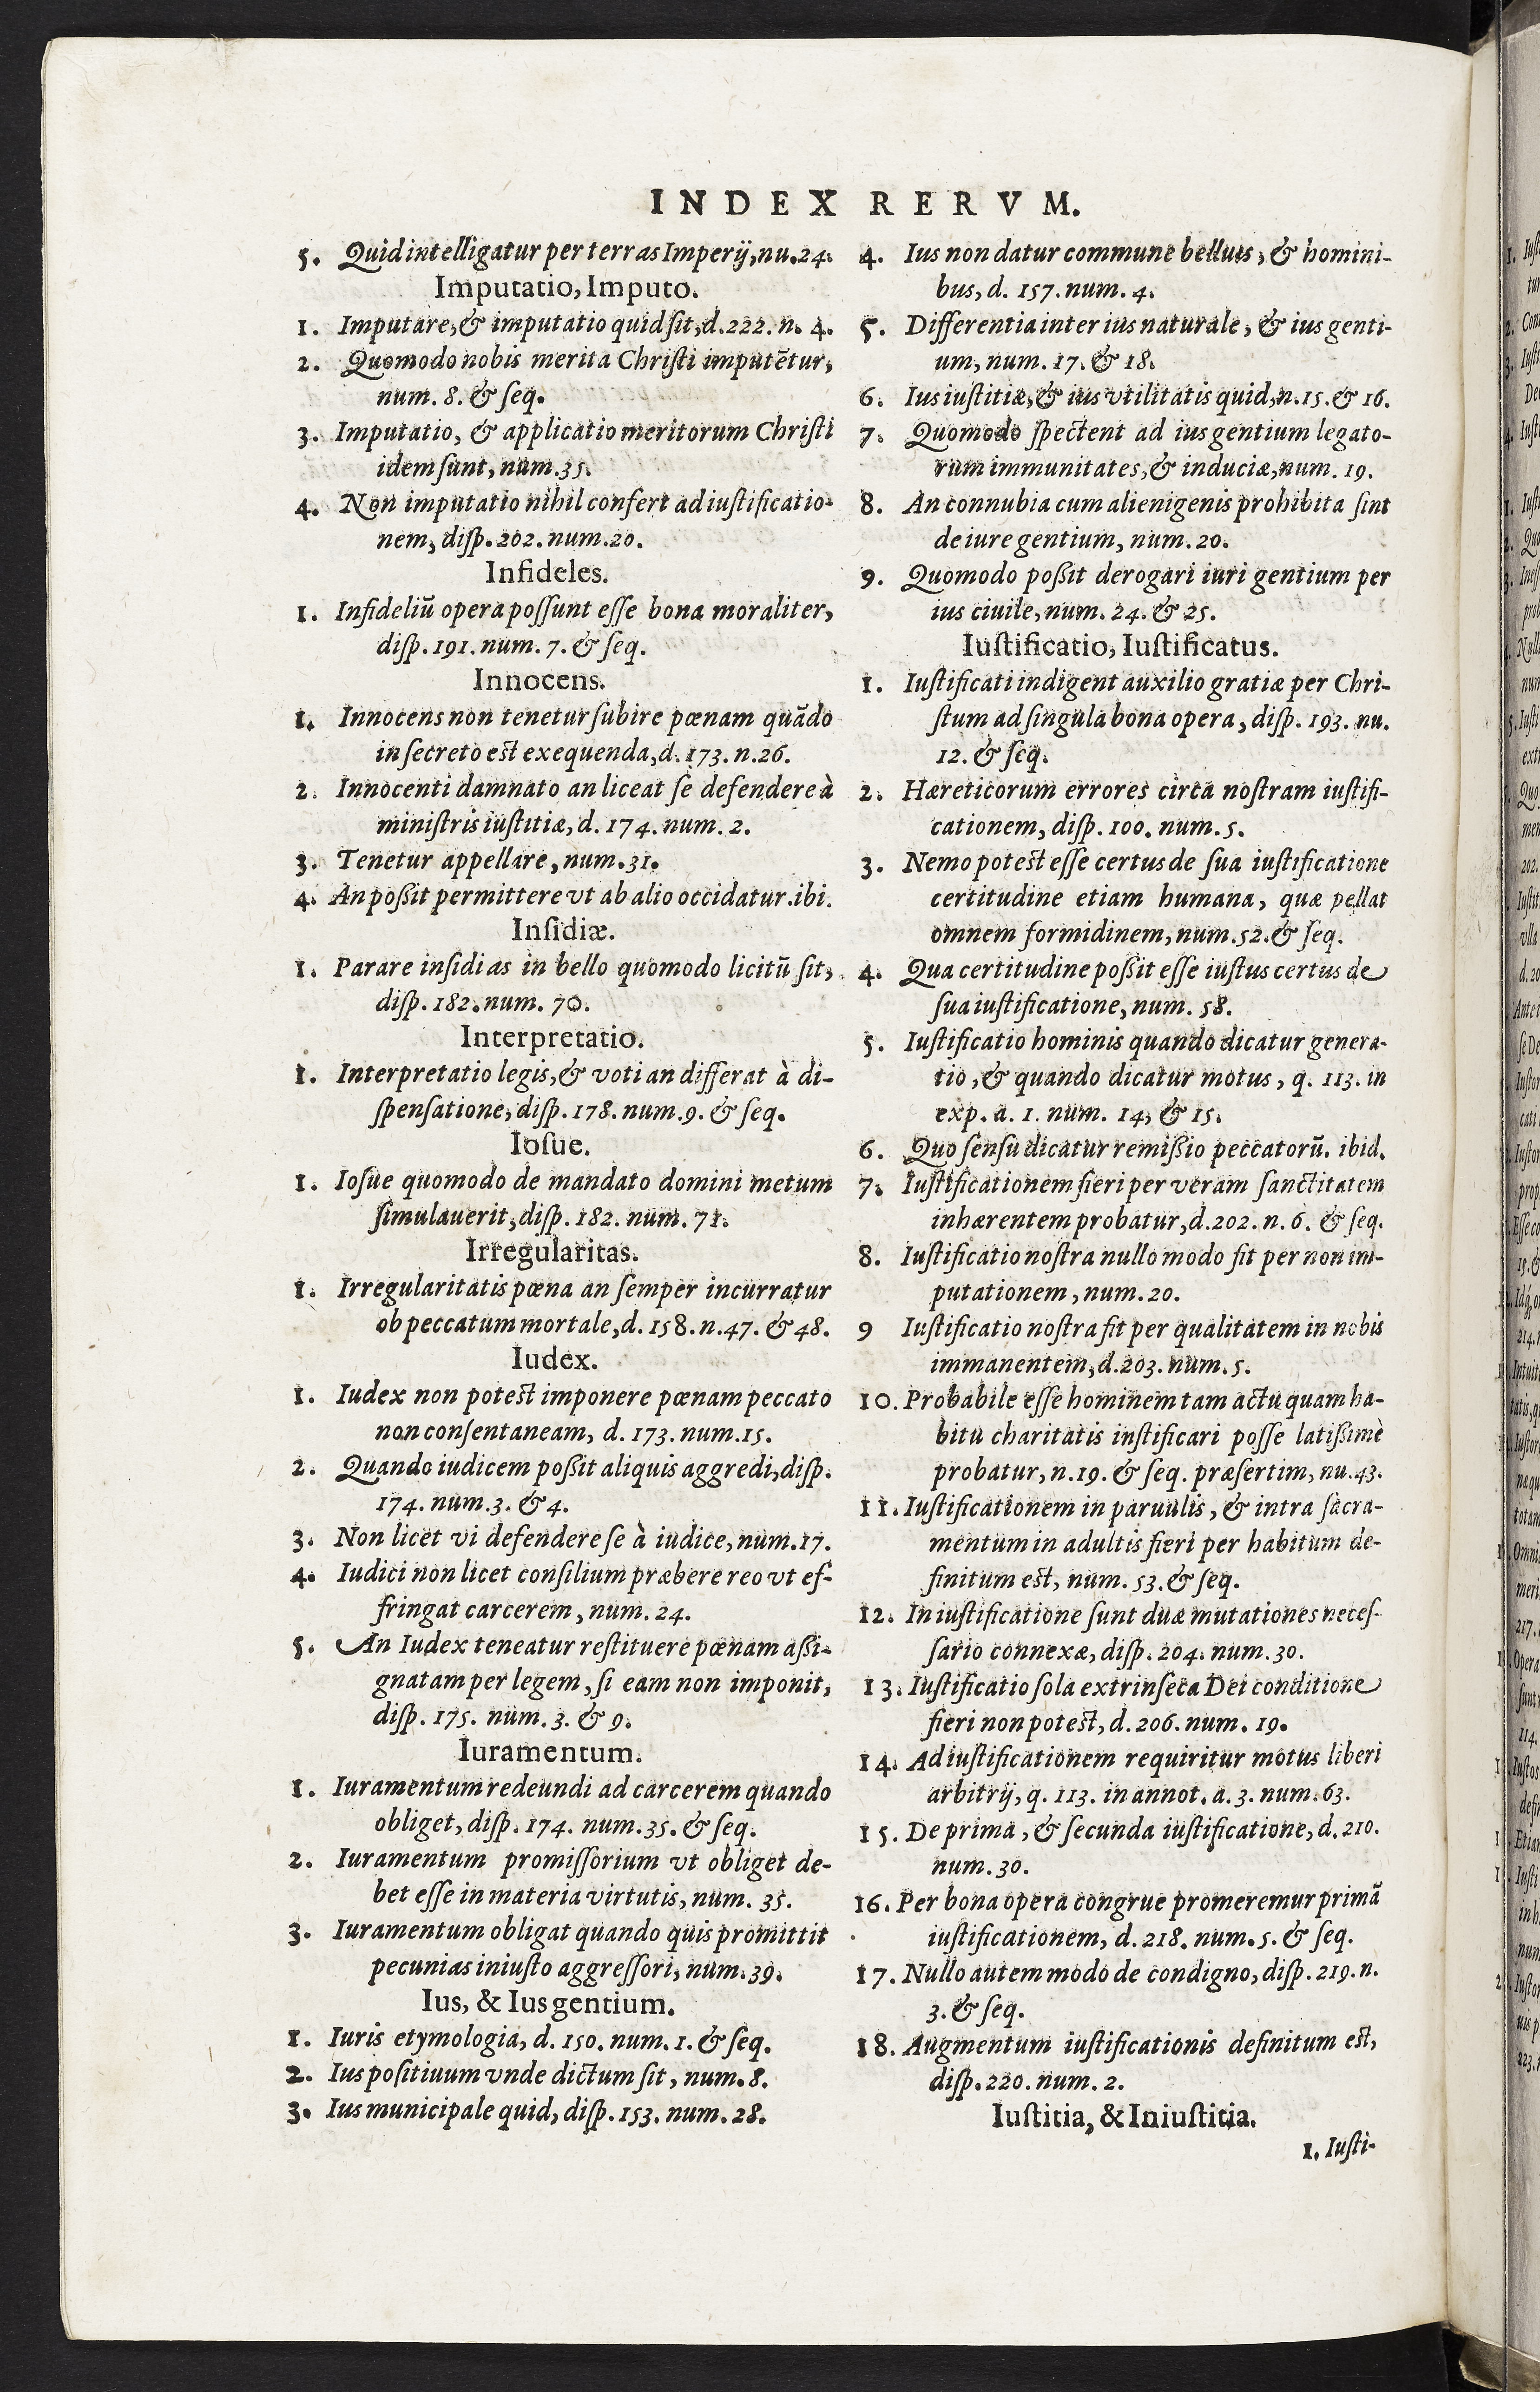 INDEX RERVM.
5. Quid intelligatur per terras Imperij, nu. 24.
Imputatio, Imputo.
1. Imputare, & imputatio quid ſit, d. 222. n. 4.
2. Quomodo nobis merita Chriſti imputẽtur,
num. 8. & ſeq.
3. Imputatio, & applicatio meritorum Chriſti
idem ſunt, num. 35.
4. Non imputatio nihil confert ad iuſtificatio-
nem, diſp. 202. num. 20.
Infideles.
1. Infideliũ opera poſſunt eſſe bona moraliter,
diſp. 191. num. 7. & ſeq.
Innocens.
1. Innocens non tenetur ſubire pœnam quãdo
in ſecreto eſt exequenda, d. 173. n. 26.
2. Innocenti damnato an liceat ſe defendere à
miniſtris iuſtitiæ, d. 174. num. 2.
3. Tenetur appellare, num. 31.
4. An poßit permittere vt ab alio occidatur. ibi.
Inſidiæ.
1. Parare inſidias in bello quomodo licitũ ſit,
diſp. 182. num. 70.
Interpretatio.
1. Interpretatio legis, & voti an differat à di-
ſpenſatione, diſp. 178. num. 9. & ſeq.
Ioſue.
1. Ioſue quomodo de mandato domini metum
ſimulauerit, diſp. 182. num. 71.
Irregularitas.
1. Irregularitatis pœna an ſemper incurratur
ob peccatum mortale, d. 158. n. 47. & 48.
Iudex.
1. Iudex non poteſt imponere pœnam peccato
non conſentaneam, d. 173. num. 15.
2. Quando iudicem poßit aliquis aggredi, diſp.
174. num. 3. & 4.
3. Non licet vi defendere ſe à iudice, num. 17.
4. Iudici non licet conſilium præbere reo vt ef-
fringat carcerem, num. 24.
5. An Iudex teneatur reſtituere pœnam aßi-
gnatam per legem, ſi eam non imponit,
diſp. 175. num. 3. & 9.
Iuramentum.
1. Iuramentum redeundi ad carcerem quando
obliget, diſp. 174. num. 35. & ſeq.
2. Iuramentum promiſſorium vt obliget de-
bet eſſe in materia virtutis, num. 35.
3. Iuramentum obligat quando quis promittit
pecunias iniuſto aggreſſori, num. 39.
Ius, & Ius gentium.
1. Iuris etymologia, d. 150. num. 1. & ſeq.
2. Ius poſitiuum vnde dictum ſit, num. 8.
3. Ius municipale quid, diſp. 153. num. 28.
4. Ius non datur commune belluis, & homini-
bus, d. 157. num. 4.
5. Differentia inter ius naturale, & ius genti-
um, num. 17. & 18.
6. Ius iuſtitiæ, & ius vtilitatis quid, n. 15. & 16.
7. Quomodo ſpectent ad ius gentium legato-
rum immunitates, & induciæ, num. 19.
8. An connubia cum alienigenis prohibita ſint
de iure gentium, num. 20.
9. Quomodo poßit derogari iuri gentium per
ius ciuile, num. 24. & 25.
Iuſtificatio, Iuſtificatus.
1. Iuſtificati indigent auxilio gratiæ per Chri-
ſtum ad ſingula bona opera, diſp. 193. nu.
12. & ſeq.
2. Hæreticorum errores circa noſtram iuſtifi-
cationem, diſp. 100. num. 5.
3. Nemo poteſt eſſe certus de ſua iuſtificatione
certitudine etiam humana, quæ pellat
omnem formidinem, num. 52. & ſeq.
4. Qua certitudine poſſit eſſe iuſtus certus de
ſua iuſtificatione, num. 58.
5. Iuſtificatio hominis quando dicatur genera-
tio, & quando dicatur motus, q. 113. in
exp. a. 1. num. 14, & 15.
6. Quo ſenſu dicatur remißio peccatorũ. ibid.
7. Iuſtificationem fieri per veram ſanctitatem
inhærentem probatur, d. 202. n. 6. & ſeq.
8. Iuſtificatio noſtra nullo modo fit per non im-
putationem, num. 20.
9 Iuſtificatio noſtra fit per qualitatem in nobis
immanentem, d. 203. num. 5.
10. Probabile eſſe hominem tam actu quam ha-
bitu charitatis inſtificari poſſe latißimè
probatur, n. 19. & ſeq. præſertim, nu. 43.
11. Iuſtificationem in paruulis, & intra ſacra-
mentum in adultis fieri per habitum de-
finitum eſt, num. 53. & ſeq.
12. In iuſtificatione ſunt duæ mutationes neceſ-
ſario connexæ, diſp. 204. num. 30.
13. Iuſtificatio ſola extrinſeca Dei conditione
fieri non poteſt, d. 206. num. 19.
14. Ad iuſtificationem requiritur motus liberi
arbitrij, q. 113. in annot. a. 3. num. 63.
15. De prima, & ſecunda iuſtificatione, d. 210.
num. 30.
16. Per bona opera congrue promeremur primã
iuſtificationem, d. 218. num. 5. & ſeq.
17. Nullo autem modo de condigno, diſp. 219. n.
3. & ſeq.
18. Augmentum iuſtificationis definitum eſt,
diſp. 220. num. 2.
Iuſtitia, & Iniuſtitia.
1. Iuſti-